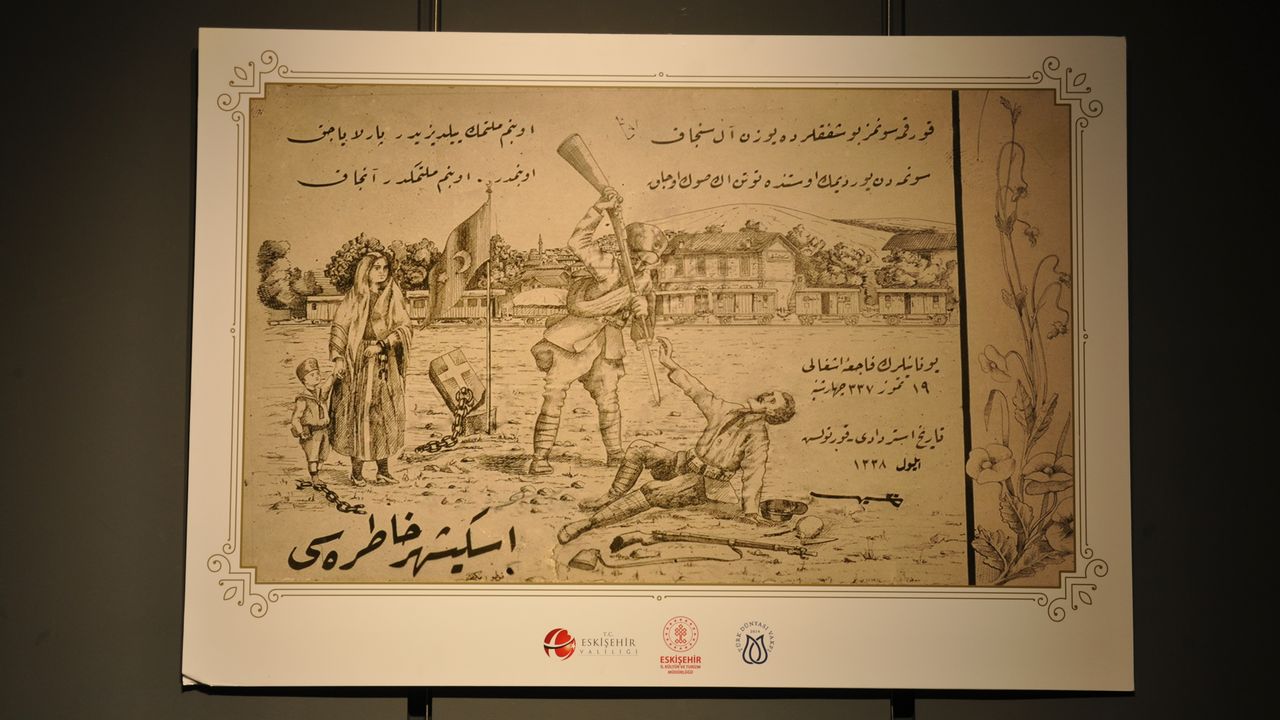 قورقمه سونمز بو شفقلرده یوزن آل سنجاق
سونمه‌دن یوردیمك اوستنده توتن اك صوك اوجاق
او بنم ملتمك ییلدیزیدر پارلایاجق
او بنمدر .. او بنم ملتمكدر آنجاق
یونانیلرك فاجعۀ اشغالی
١٩ تموز ٣٣٧ چهارشنبه
تاریخ استردادی - قورتولش
ایلول ١٣٣٨
اسكیشهر خاطره‌سی
T.C.
ESKİŞEHİR
VALİLİĞİ
ESKİŞEHİR
İL KÜLTÜR VE TURİZM
MÜDÜRLÜĞÜ
TÜRK DÜNYASI VAKFI
2014